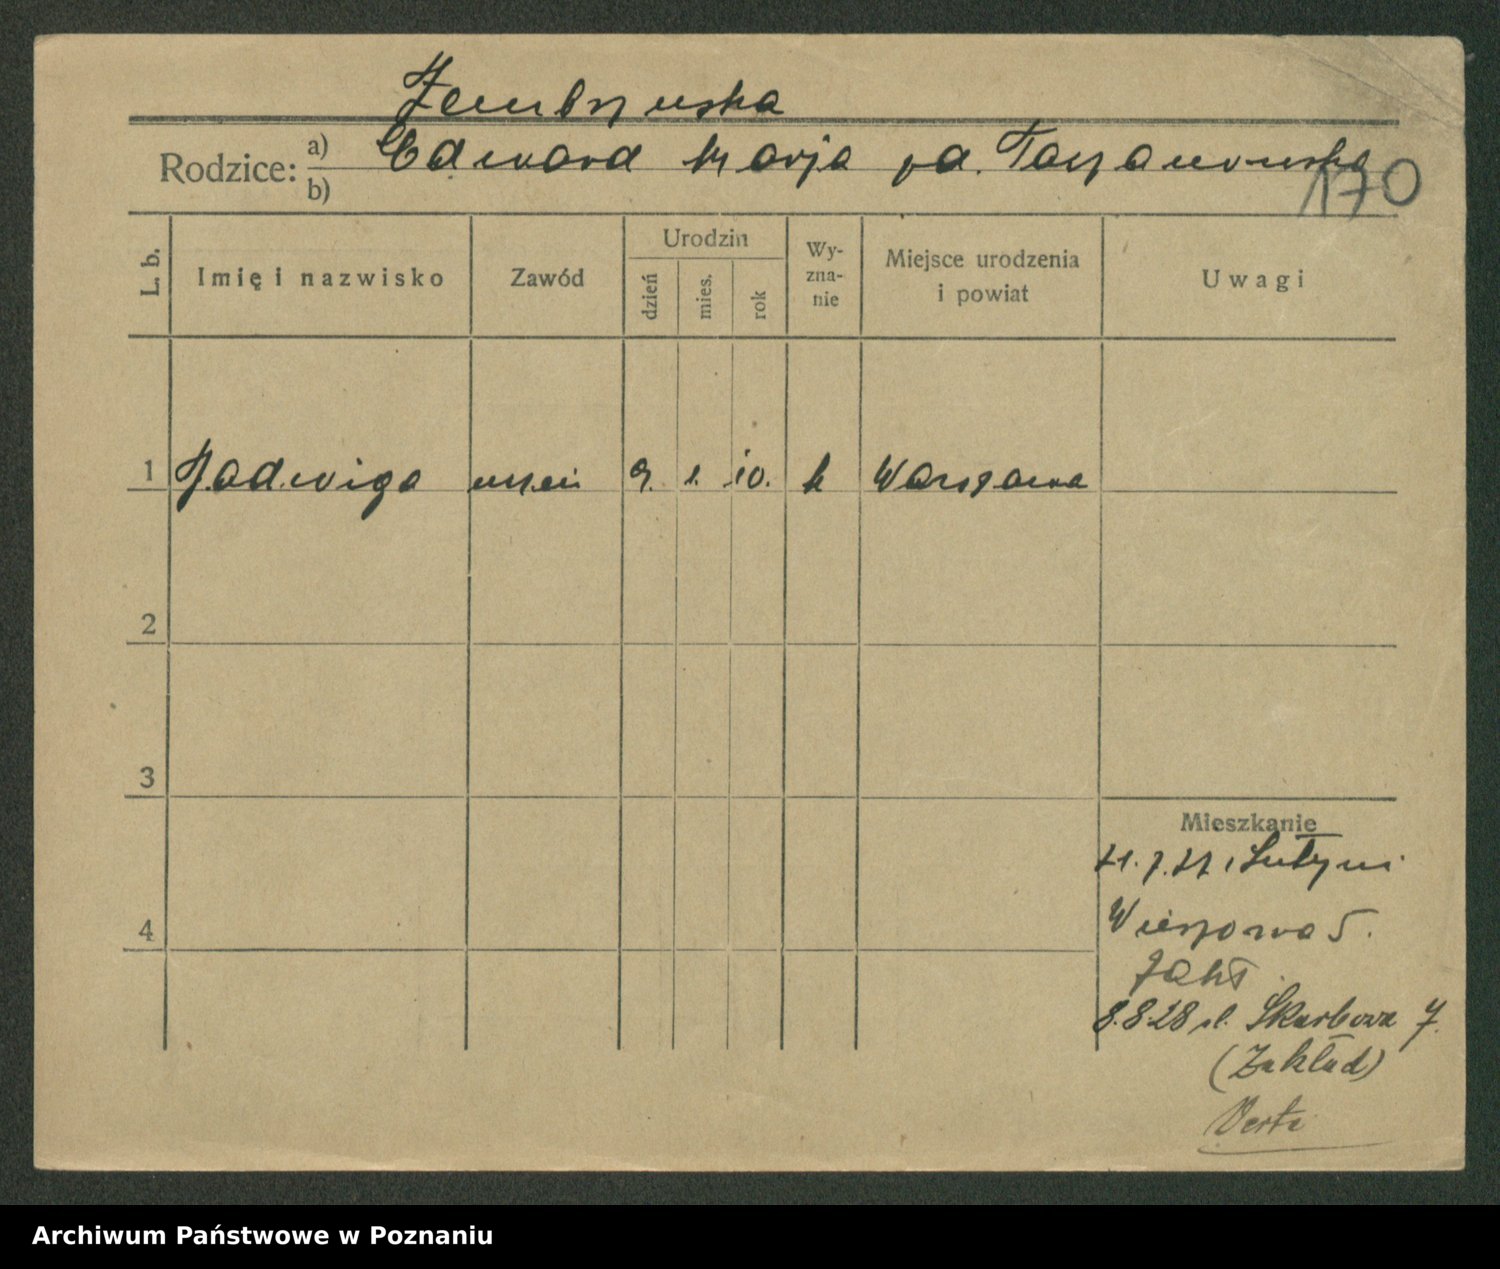 Zembrzuska
Rodzice: a) Edward Marja zd. Tarzanowska
b)
170
L. b.
Imię i nazwisko
Zawód
Urodzin
dzień
mies.
rok
Wy-
zna-
nie
Miejsce urodzenia
i powiat
Uwagi
1 Jadwiga uczen 9. 1. 10. k Warszawa
2
3
4
Mieszkanie
21.7.27
5.
Zakł
8.8.28 ul. Skarbowa 7.
(Zakład)
Verte
Archiwum Państwowe w Poznaniu